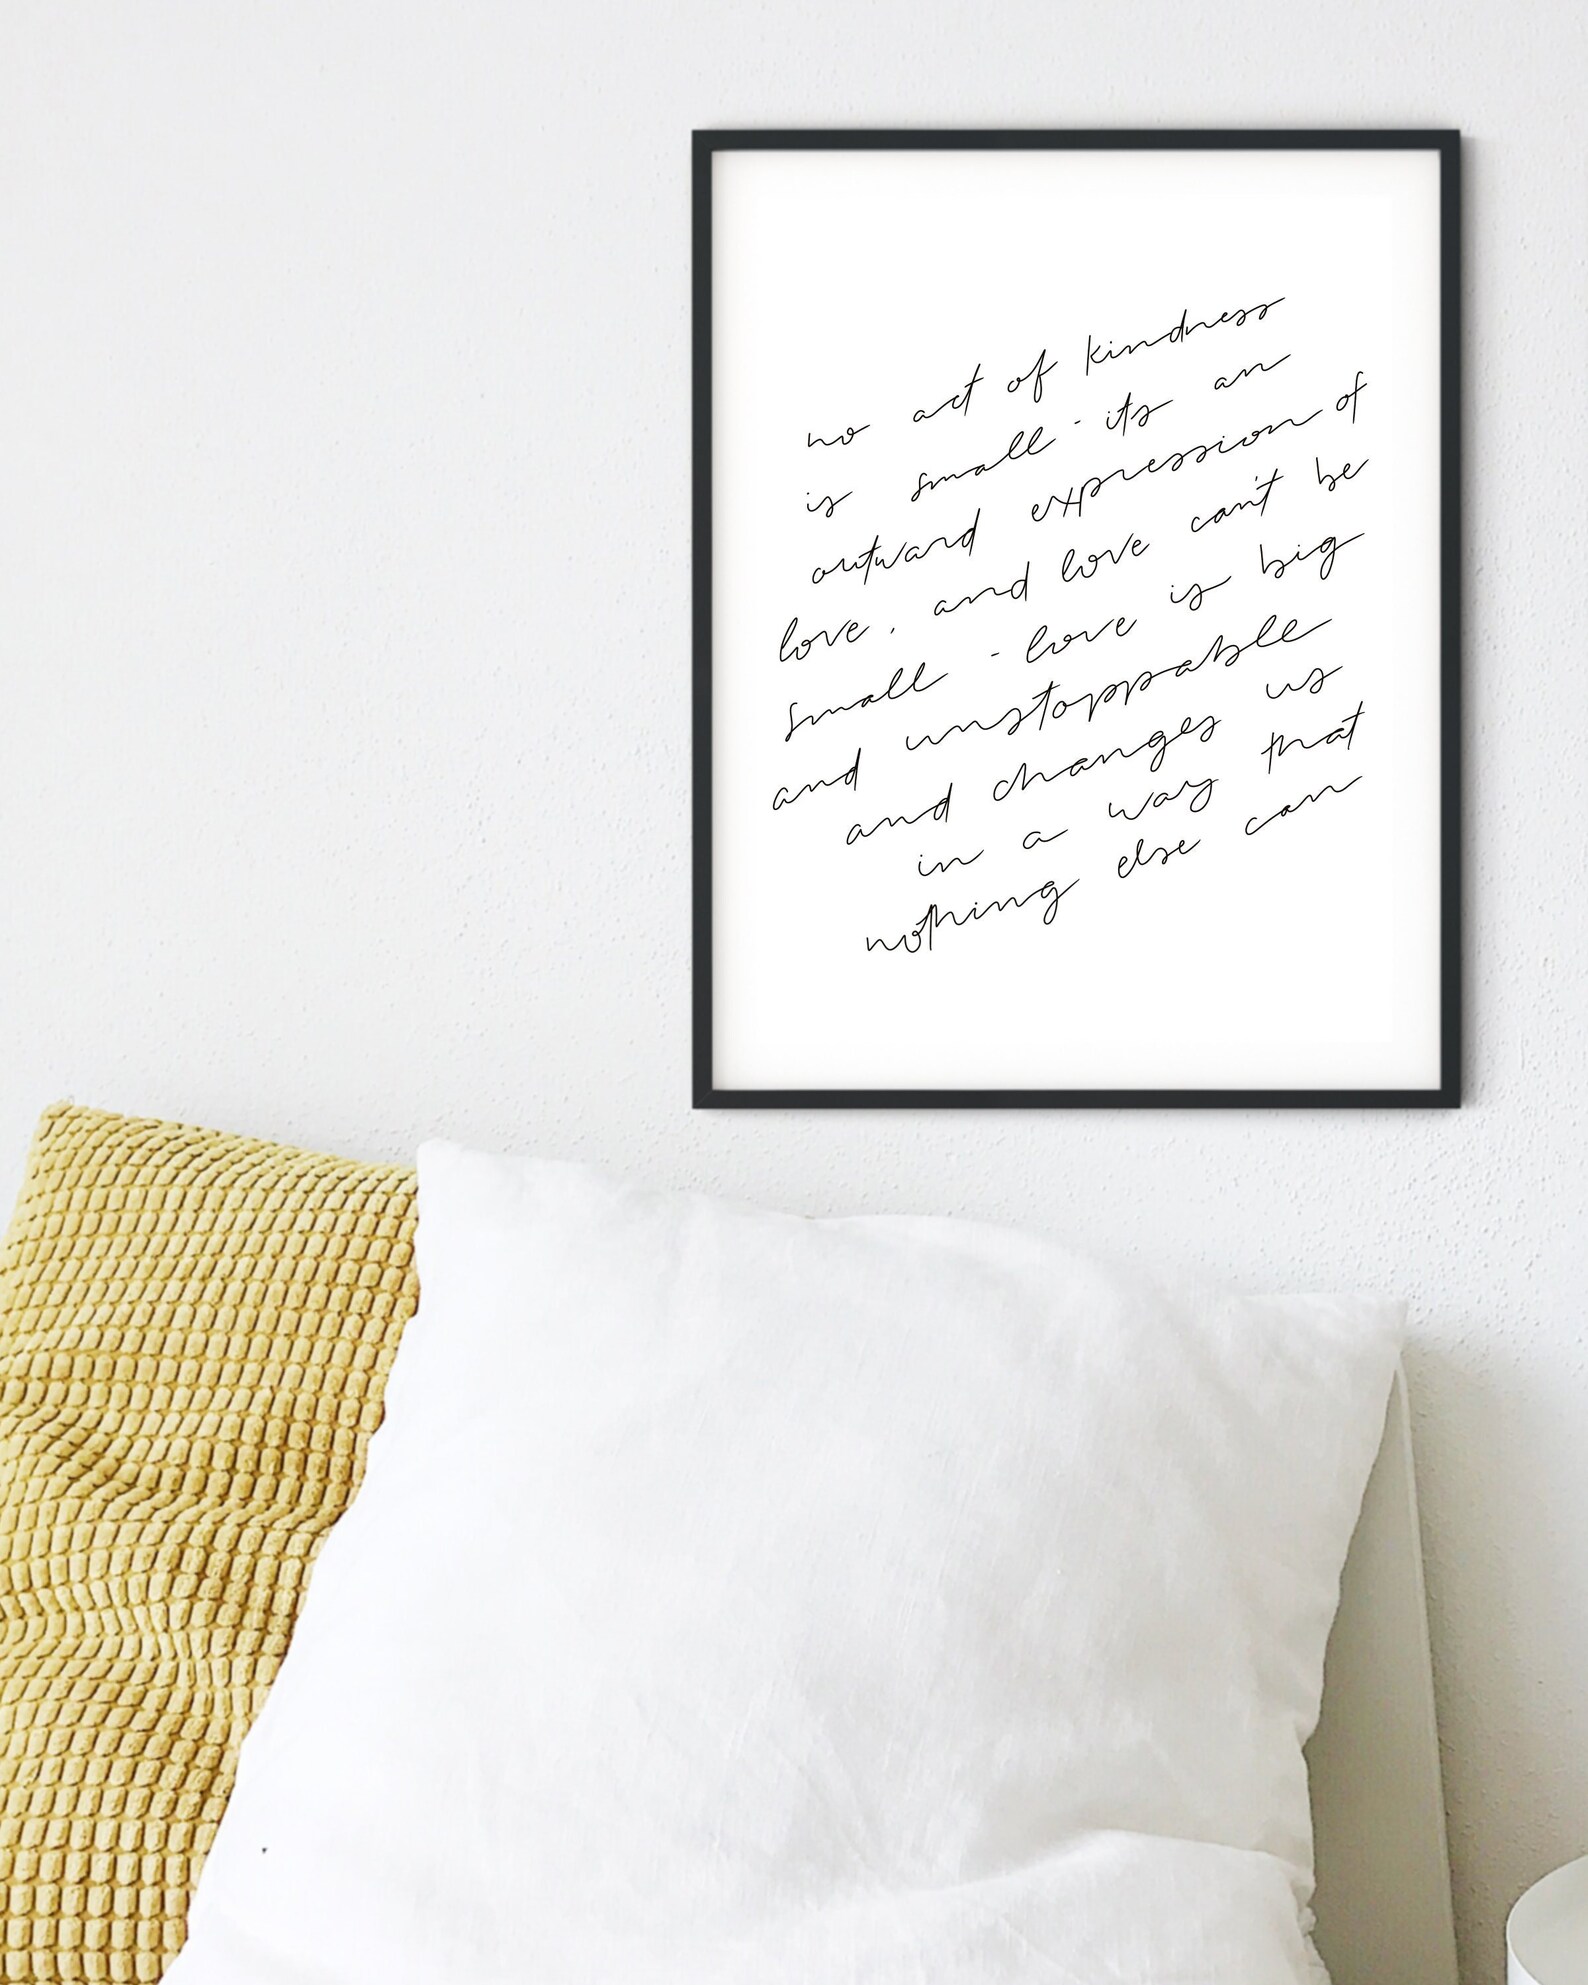 no act of kindness
is small - its an
outward expression of
love, and love can't be
small - love is big
and unstoppable
and changes us
in a way that
nothing else can